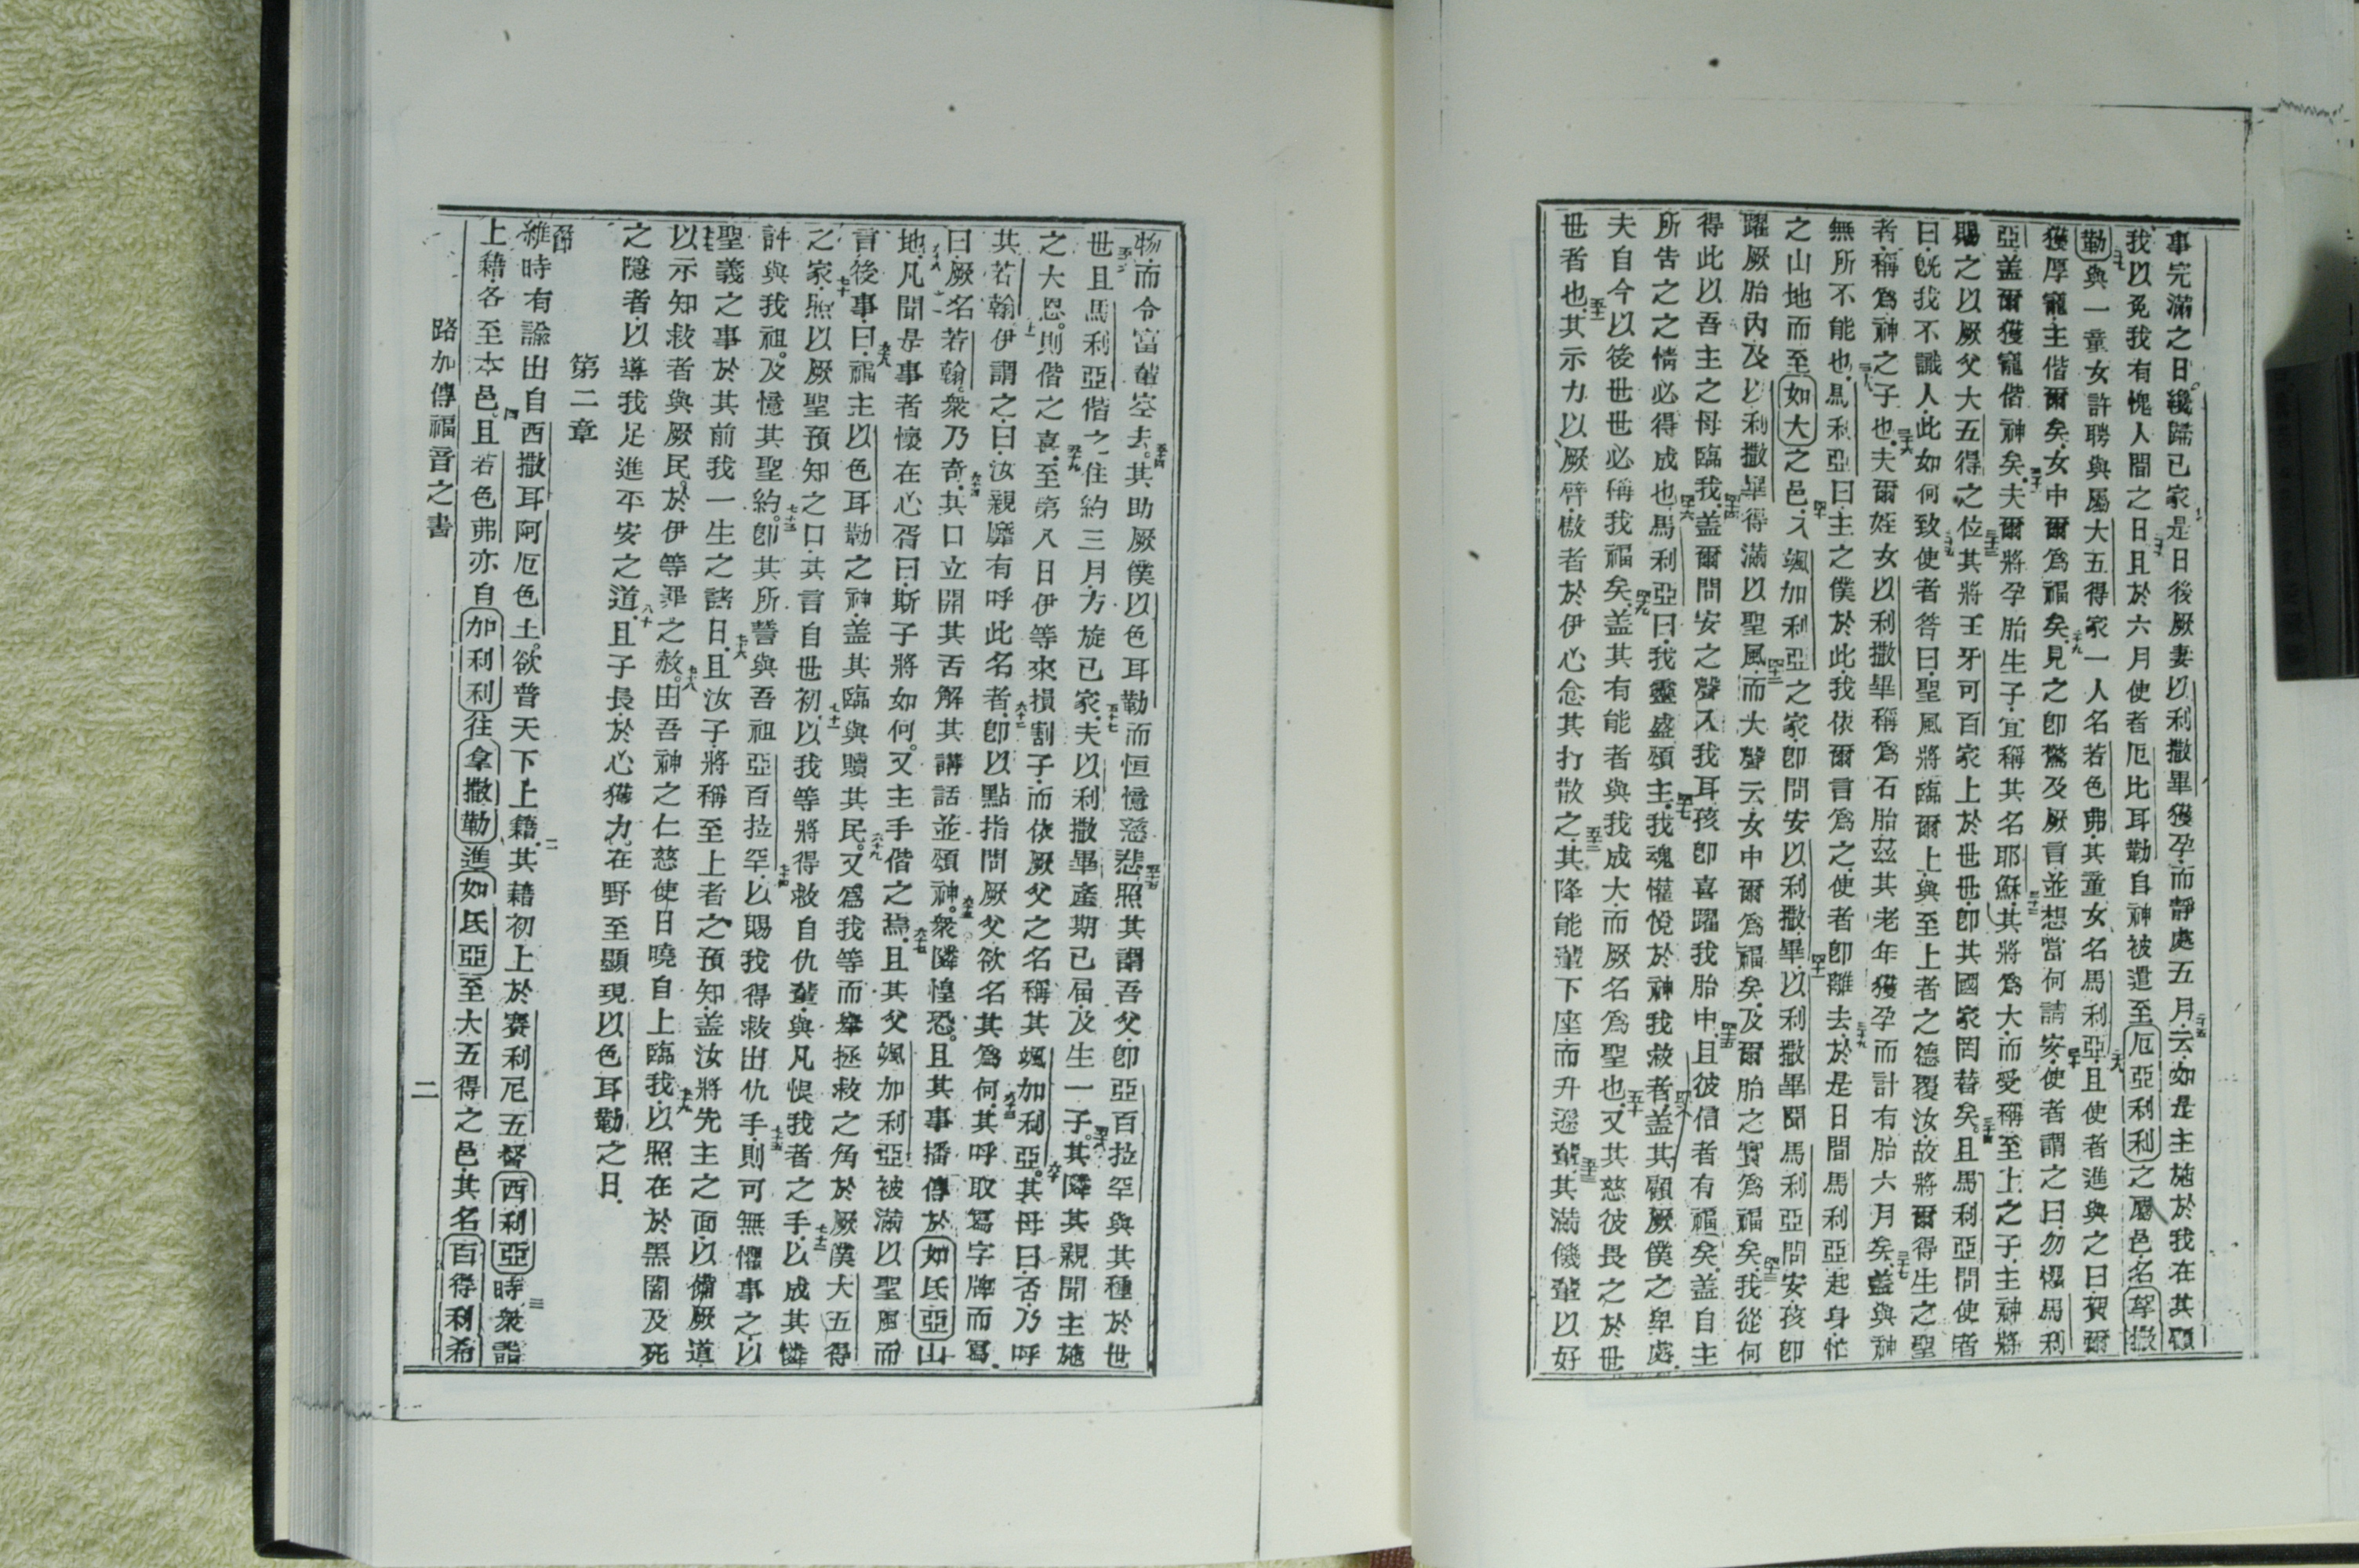 事完滿之日。纔歸已家是日後厥妻以利撒畢獲孕而靜處五月云如是主施於我在其顧
我以免我有愧人間之日且於六月使者厄比耳勒自神被遣至厄亞利利之屬邑名
勒與一童女許聘與屬大五得家一人名若色弗其童女名馬利亞且使者進與之曰賀爾
獲厚寵主偕爾矣女中爾為福矣見之即驚及厥言並想當何請安使者謂之曰勿懼馬利
亞蓋爾獲寵偕神矣夫爾將孕胎生子宜稱其名耶穌其將為大而受稱至上之子主神將
賜之以厥父大五得之位其將王牙可百家上於世世即其國家罔替矣且馬利亞問使者
曰既我不識人此如何致使者答曰聖風將臨爾上與至上者之德覆汝故將爾得生之聖
者稱為神之子也夫爾姪女以利撒畢稱為石胎茲其老年獲孕而計有胎六月矣蓋與神
無所不能也馬利亞曰主之僕於此我依爾言為之使者即離去於是日間馬利亞起身忙
之山地而至如大之邑入颯加利亞之家即問安以利撒畢以利撒畢聞馬利亞問安孩即
躍厥胎內及以利撒畢得滿以聖風而大聲云女中爾為福矣及爾胎之實為福矣我從何
得此以吾主之母臨我蓋爾問安之聲入我耳孩即喜躍我胎中且彼信者有福矣蓋自主
所告之之情必得成也馬利亞曰我靈盛頌主我魂懽悅於神我救者蓋其顧厥僕之卑處
夫自今以後世世必稱我福矣蓋其有能者與我成大而厥名為聖也又其慈彼畏之於世
世者也其示力以厥臂傲者於伊心念其打散之其降能輩下座而升遜輩其滿饑輩以好
物而令富輩空去。其助厥僕以色耳勒而恒憶慈悲照其謂吾父即亞百拉罕與其種於世
世且馬利亞偕之住約三月方旋已家夫以利撒畢產期已屆及生一子其隣其親聞主施
之大恩。則偕之喜至第八日伊等來損割子而依厥父之名稱其颯加利亞。其母曰否乃呼
其若翰伊謂之曰汝親靡有呼此名者即以點指問厥父欲名其為何其呼取寫字牌而寫
曰厥名若翰眾乃奇其口立開其舌解其講話並頌神。眾隣惶恐。且其事播傳於如氐亞山
地凡聞是事者懷在心胥曰斯子將如何。又主手偕之焉且其父颯加利亞被滿以聖風而
言後事曰福主以色耳勒之神蓋其臨與贖其民又為我等而舉拯救之角於厥僕大五得
之家照以厥聖預知之口其言自世初以我等將得救自仇輩與凡恨我者之手以成其憐
許與我祖。及憶其聖約。即其所誓與吾祖亞百拉罕以賜我得救出仇手則可無懼事之以
聖義之事於其前我一生之諸日且汝子將稱至上者之預知蓋汝將先主之面以備厥道
以示知救者與厥民於伊等罪之赦。由吾神之仁慈使日曉自上臨我以照在於黑闇及死
之隱者以導我足進平安之道且子長於心獲力在野至顯現以色耳勒之日
第二章
維時有諭出自西撒耳阿厄色土。欲普天下上籍其藉初上於賽利尼五督西利亞時眾詣
上藉各至本邑且若色弗亦自加利利往拿撒勒進如氐亞至大五得之邑其名百得利希
路加傳福音之書
二